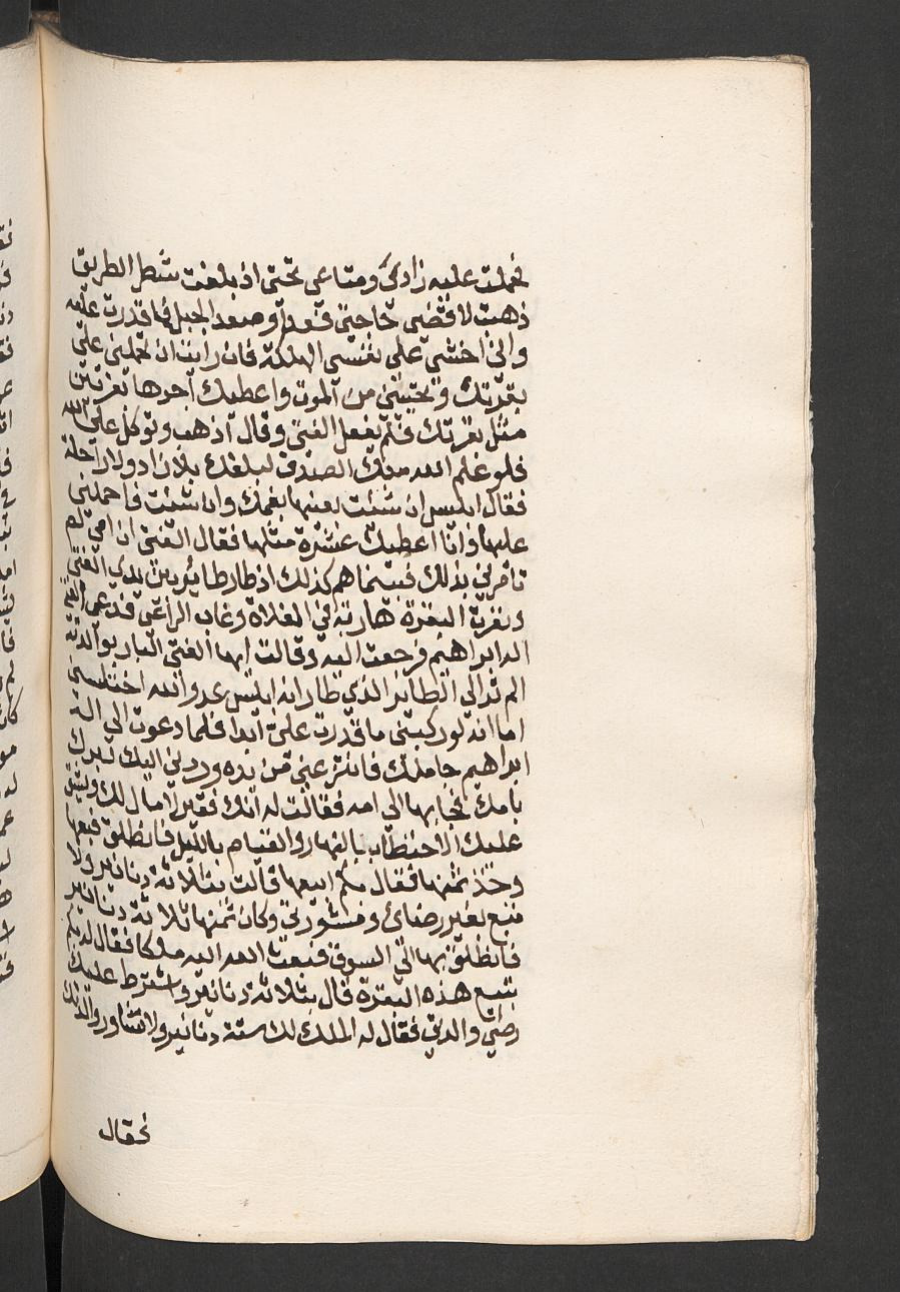 فحملت عليه زادي ومتاعي حتى اذ بلغت شطر الطريق
ذهبت لاقضي حاجتي فعدا وصعد الجبل فما قدرت عليه
واني اخشى على نفسي الهلكة فان رايت ان تحملني على
بقرتك وتنجيني من الموت واعطيك اجرها بقرتين
مثل بقرتك فلم يفعل الفتى وقال اذهب وتوكل على الله
فلو علم الله منك الصدق لبلغك بلا زاد ولا راحلة
فقال ابليس ان شئت بعنيها بحكمك وان شئت فاحملني
عليها وانا اعطيك عشرة مثلها فقال الفتى ان امي لم
تامرني بذلك فبينما هم كذلك اذ طار طاير من بين يدي الفتى
ونفرت البقرة هاربة في الفلاة وغاب الراعي فدعى الفتى
اله ابراهيم فرجعت اليه وقالت ايها الفتى البار بوالدته
الم تر الى الطائر الذي طار انه ابليس عدو الله اختلسني
اما انه لو ركبني ما قدرت علي ابدا فلما دعوت الى اله
ابراهيم جا ملك فانتزعني من يده وردني اليك لبرك
بامك فجا بها الى امه فقالت له انك فقير لا مال لك ويشق
عليك الاحتطاب بالنهار والقيام بالليل فانطلق فبعها
وخذ ثمنها فقال بكم ابيعها قالت بثلاثة دنانير ولا
تبع بغير رضائ ومشورتي وكان ثمنها ثلاثة دنانير
فانطلق بها الى السوق فبعث الله اليه ملكا فقال له بكم
تبيع هذه البقرة قال بثلاثة دنانير واشترط عليك
رضي والدتي فقال له الملك لك ستة دنانير ولا تشاور والدتك
فقال